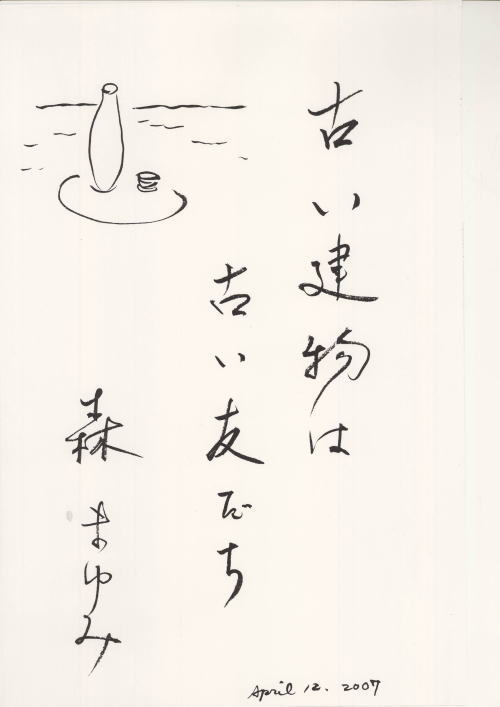 古い建物は
古い友だち
森まゆみ
April 12. 2007